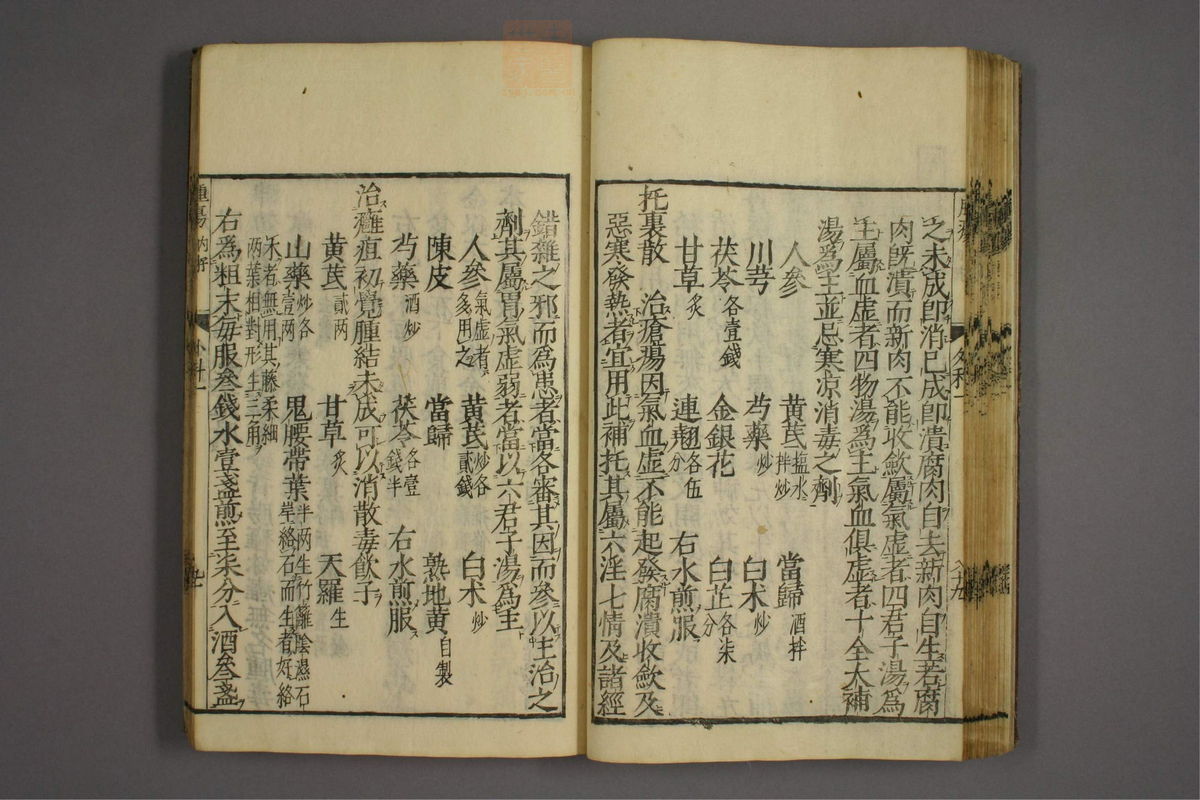 之未成卽消已成卽潰腐肉自去新肉自生若腐
肉旣潰而新肉不能收斂屬氣虛者四君子湯爲
主屬血虛者四物湯爲主氣血俱虛者十全大補
湯爲主並忌寒凉消毒之劑
人參 黃芪 塩水拌炒 當歸 酒拌
川芎 芍藥 炒 白术 炒
茯苓 各壹錢 金銀花 白芷 各柒分
甘草 炙 連翹 各伍分 右水煎服
托裏散 治瘡瘍因氣血虛不能起發腐潰收斂及
惡寒發熱者宜用此補托其屬六淫七情及諸經
錯雜之邪而爲患者當各審其因而參以主治之
劑其屬胃氣虛弱者當以六君子湯爲主
人參 氣虛者多用之 黃芪 炒各貳錢 白术 炒
陳皮 當歸 熟地黃 自製
芍藥 酒炒 茯苓 各壹錢半 右水煎服
治癰疽初覺腫結未成可以消散毒飮子
黃芪 貳两 甘草 炙 天羅 生
山藥 炒各壹两 鬼腰帶葉 半两生竹籬陰濕石岸絡石而生者好絡
木者無用其藤柔細两葉相對形生三角
右爲粗末每服叁錢水壹盞煎至柒分入酒叁盞